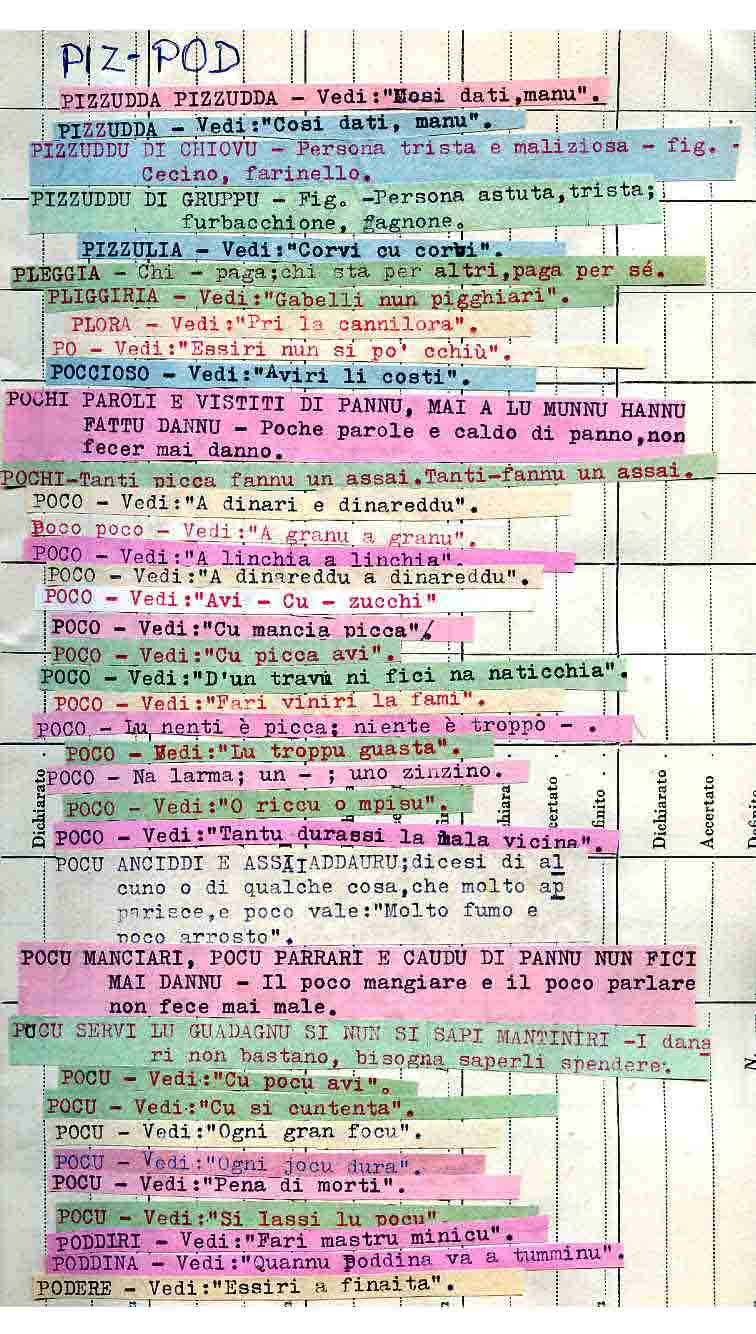 PIZ-POD
PIZZUDDA PIZZUDDA - Vedi:"Cosi dati,manu".
PIZZUDDA - Vedi:"Cosi dati, manu".
PIZZUDDU DI CHIOVU - Persona trista e maliziosa - fig. -
Cecino, farinello.
PIZZUDDU DI GRUPPU - Fig. -Persona astuta,trista;
furbacchione, gagnone.
PIZZULIA - Vedi:"Corvi cu corbi".
PLEGGIA - Chi - paga;chi sta per altri,paga per sé.
PLIGGIRIA - Vedi:"Gabelli nun pigghiari".
PLORA - Vedi:"Pri la cannilora".
PO - Vedi:"Essiri nun si po' cchiù".
POCCIOSO - Vedi:"Aviri li costi".
POCHI PAROLI E VISTITI DI PANNU, MAI A LU MUNNU HANNU
FATTU DANNU - Poche parole e caldo di panno,non
fecer mai danno.
POCHI-Tanti picca fannu un assai.Tanti-fannu un assai.
POCO - Vedi:"A dinari e dinareddu".
Poco poco - Vedi:"A granu a granu".
POCO - Vedi:"A linchia a linchia".
POCO - Vedi:"A dinareddu a dinareddu".
POCO - Vedi:"Avi - Cu - zucchi"
POCO - Vedi:"Cu mancia picca"/
POCO - Vedi:"Cu picca avi".
POCO - Vedi:"D'un travu ni fici na naticchia".
POCO - Vedi:"Fari viniri la fami".
POCO - Lu nenti è picca; niente è troppo - .
POCO - Vedi:"Lu troppu guasta".
POCO - Na larma; un - ; uno zinzino.
POCO - Vedi:"O riccu o mpisu".
POCO - Vedi:"Tantu durassi la mala vicina".
Dichiarato
chiara
certato
finito
Dichiarato
Accertato
POCU ANCIDDI E ASSAI ADDAURU;dicesi di al
cuno o di qualche cosa,che molto ap
parisce,e poco vale:"Molto fumo e
poco arrosto".
POCU MANCIARI, POCU PARRARI E CAUDU DI PANNU NUN FICI
MAI DANNU - Il poco mangiare e il poco parlare
non fece mai male.
POCU SERVI LU GUADAGNU SI NUN SI SAPI MANTINIRI -I dana
ri non bastano, bisogna saperli spendere.
POCU - Vedi:"Cu pocu avi".
POCU - Vedi:"Cu si cuntenta".
POCU - Vedi:"Ogni gran focu".
POCU - Vedi:"Ogni jocu dura".
POCU - Vedi:"Pena di morti".
POCU - Vedi:"Si lassi lu pocu"
PODDIRI - Vedi:"Fari mastru minicu".
PODDINA - Vedi:"Quannu Poddina va a tumminu".
PODERE - Vedi:"Essiri a finaita".